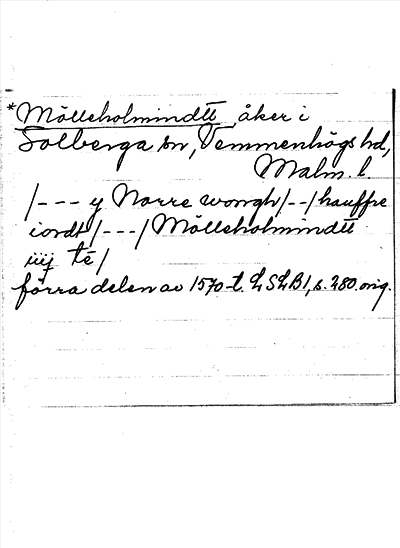 *Mölleholmindtt, åker i
Solberga sn, Vemmenhögs hd,
Malm. l.
/--- y Norre wongh/--/hauffre
iordt/---/Mölleholmindtt
iiij té/
förra delen av 1570-t. LSLB1, s. 280. orig.